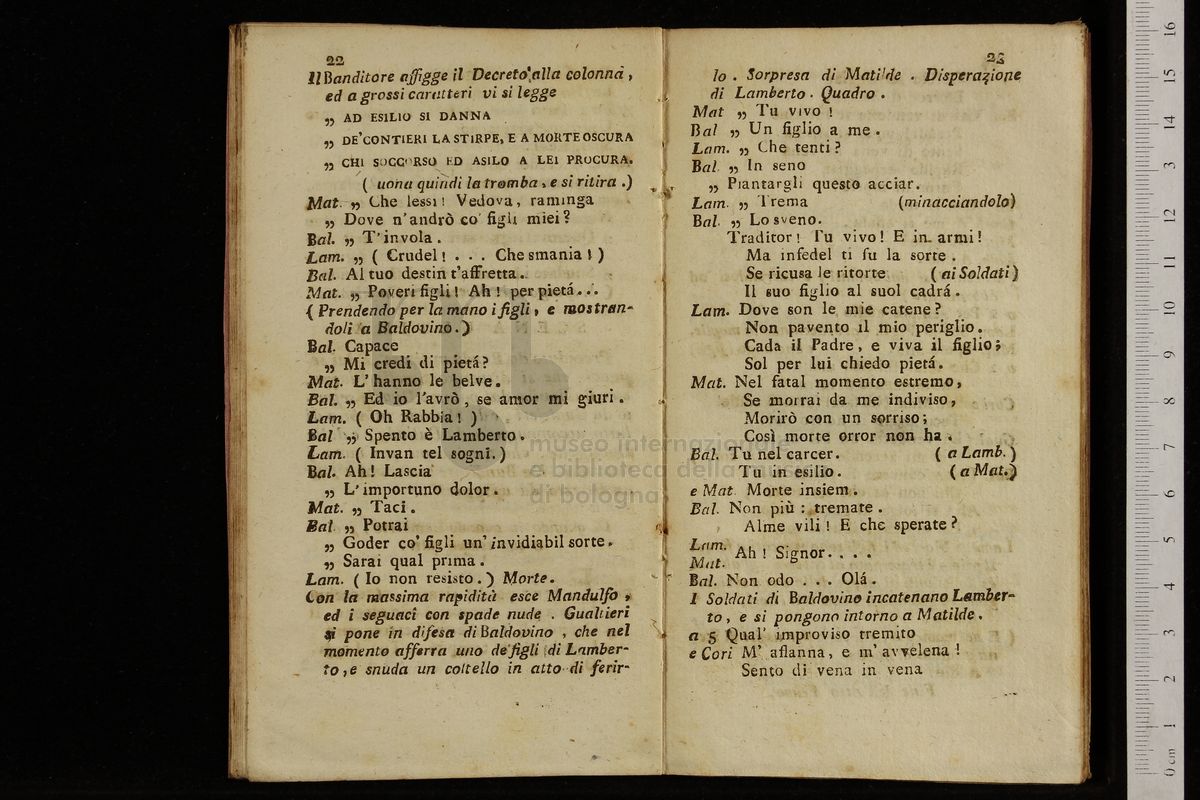 22
Il Banditore affigge il Decreto alla colonna,
ed a grossi caratteri vi si legge
„ AD ESILIO SI DANNA
„ DE' CONTIERI LA STIRPE, E A MORTE OSCURA
„ CHI SOCCORSO ED ASILO A LEI PROCURA.
( uona quindi la tromba, e si ritira.)
Mat. „ Che lessi! Vedova, raminga
„ Dove n'andrò co' figli miei?
Bal. „ T'invola.
Lam. „ ( Crudel! . . . Che smania!)
Bal. Al tuo destin t'affretta.
Mat. „ Poveri figli! Ah! per pietá...
( Prendendo per la mano i figli, e mostran-
doli a Baldovino.)
Bal. Capace
„ Mi credi di pietá?
Mat. L'hanno le belve.
Bal. „ Ed io l'avrò, se amor mi giuri.
Lam. ( Oh Rabbia! )
Bal „ Spento è Lamberto.
Lam. ( Invan tel sogni.)
Bal. Ah! Lascia
„ L'importuno dolor.
Mat. „ Taci.
Bal „ Potrai
„ Goder co' figli un' invidiabil sorte.
„ Sarai qual prima.
Lam. ( Io non resisto.) Morte.
Con la massima rapidità esce Mandulfo,
ed i seguaci con spade nude. Gualtieri
si pone in difesa di Baldovino, che nel
momento afferra uno de' figli di Lamber-
to, e snuda un coltello in atto di ferir-
23
lo. Sorpresa di Matilde. Disperazione
di Lamberto. Quadro.
Mat „ Tu vivo!
Bal „ Un figlio a me.
Lam. „ Che tenti?
Bal. „ In seno
„ Piantargli questo acciar.
Lam. „ Trema (minacciandolo)
Bal. „ Lo sveno.
Traditor! Tu vivo! E in armi!
Ma infedel ti fu la sorte.
Se ricusa le ritorte (ai Soldati)
Il suo figlio al suol cadrá.
Lam. Dove son le mie catene?
Non pavento il mio periglio.
Cada il Padre, e viva il figlio;
Sol per lui chiedo pietá.
Mat. Nel fatal momento estremo,
Se morrai da me indiviso,
Morirò con un sorriso;
Così morte orror non ha.
Bal. Tu nel carcer. ( a Lamb.)
Tu in esilio. ( a Mat.)
e Mat Morte insiem.
Bal. Non più: tremate.
Alme vili! E che sperate?
Lam.
Mat. Ah! Signor. . . .
Bal. Non odo . . . Olá.
I Soldati di Baldovino incatenano Lamber-
to, e si pongono intorno a Matilde.
a 5 Qual' improviso tremito
e Cori M' affanna, e m' avvelena!
Sento di vena in vena
museo internazionale
e biblioteca della musica
di bologna
0 cm 1 2 3 4 5 6 7 8 9 10 11 12 13 14 15 16